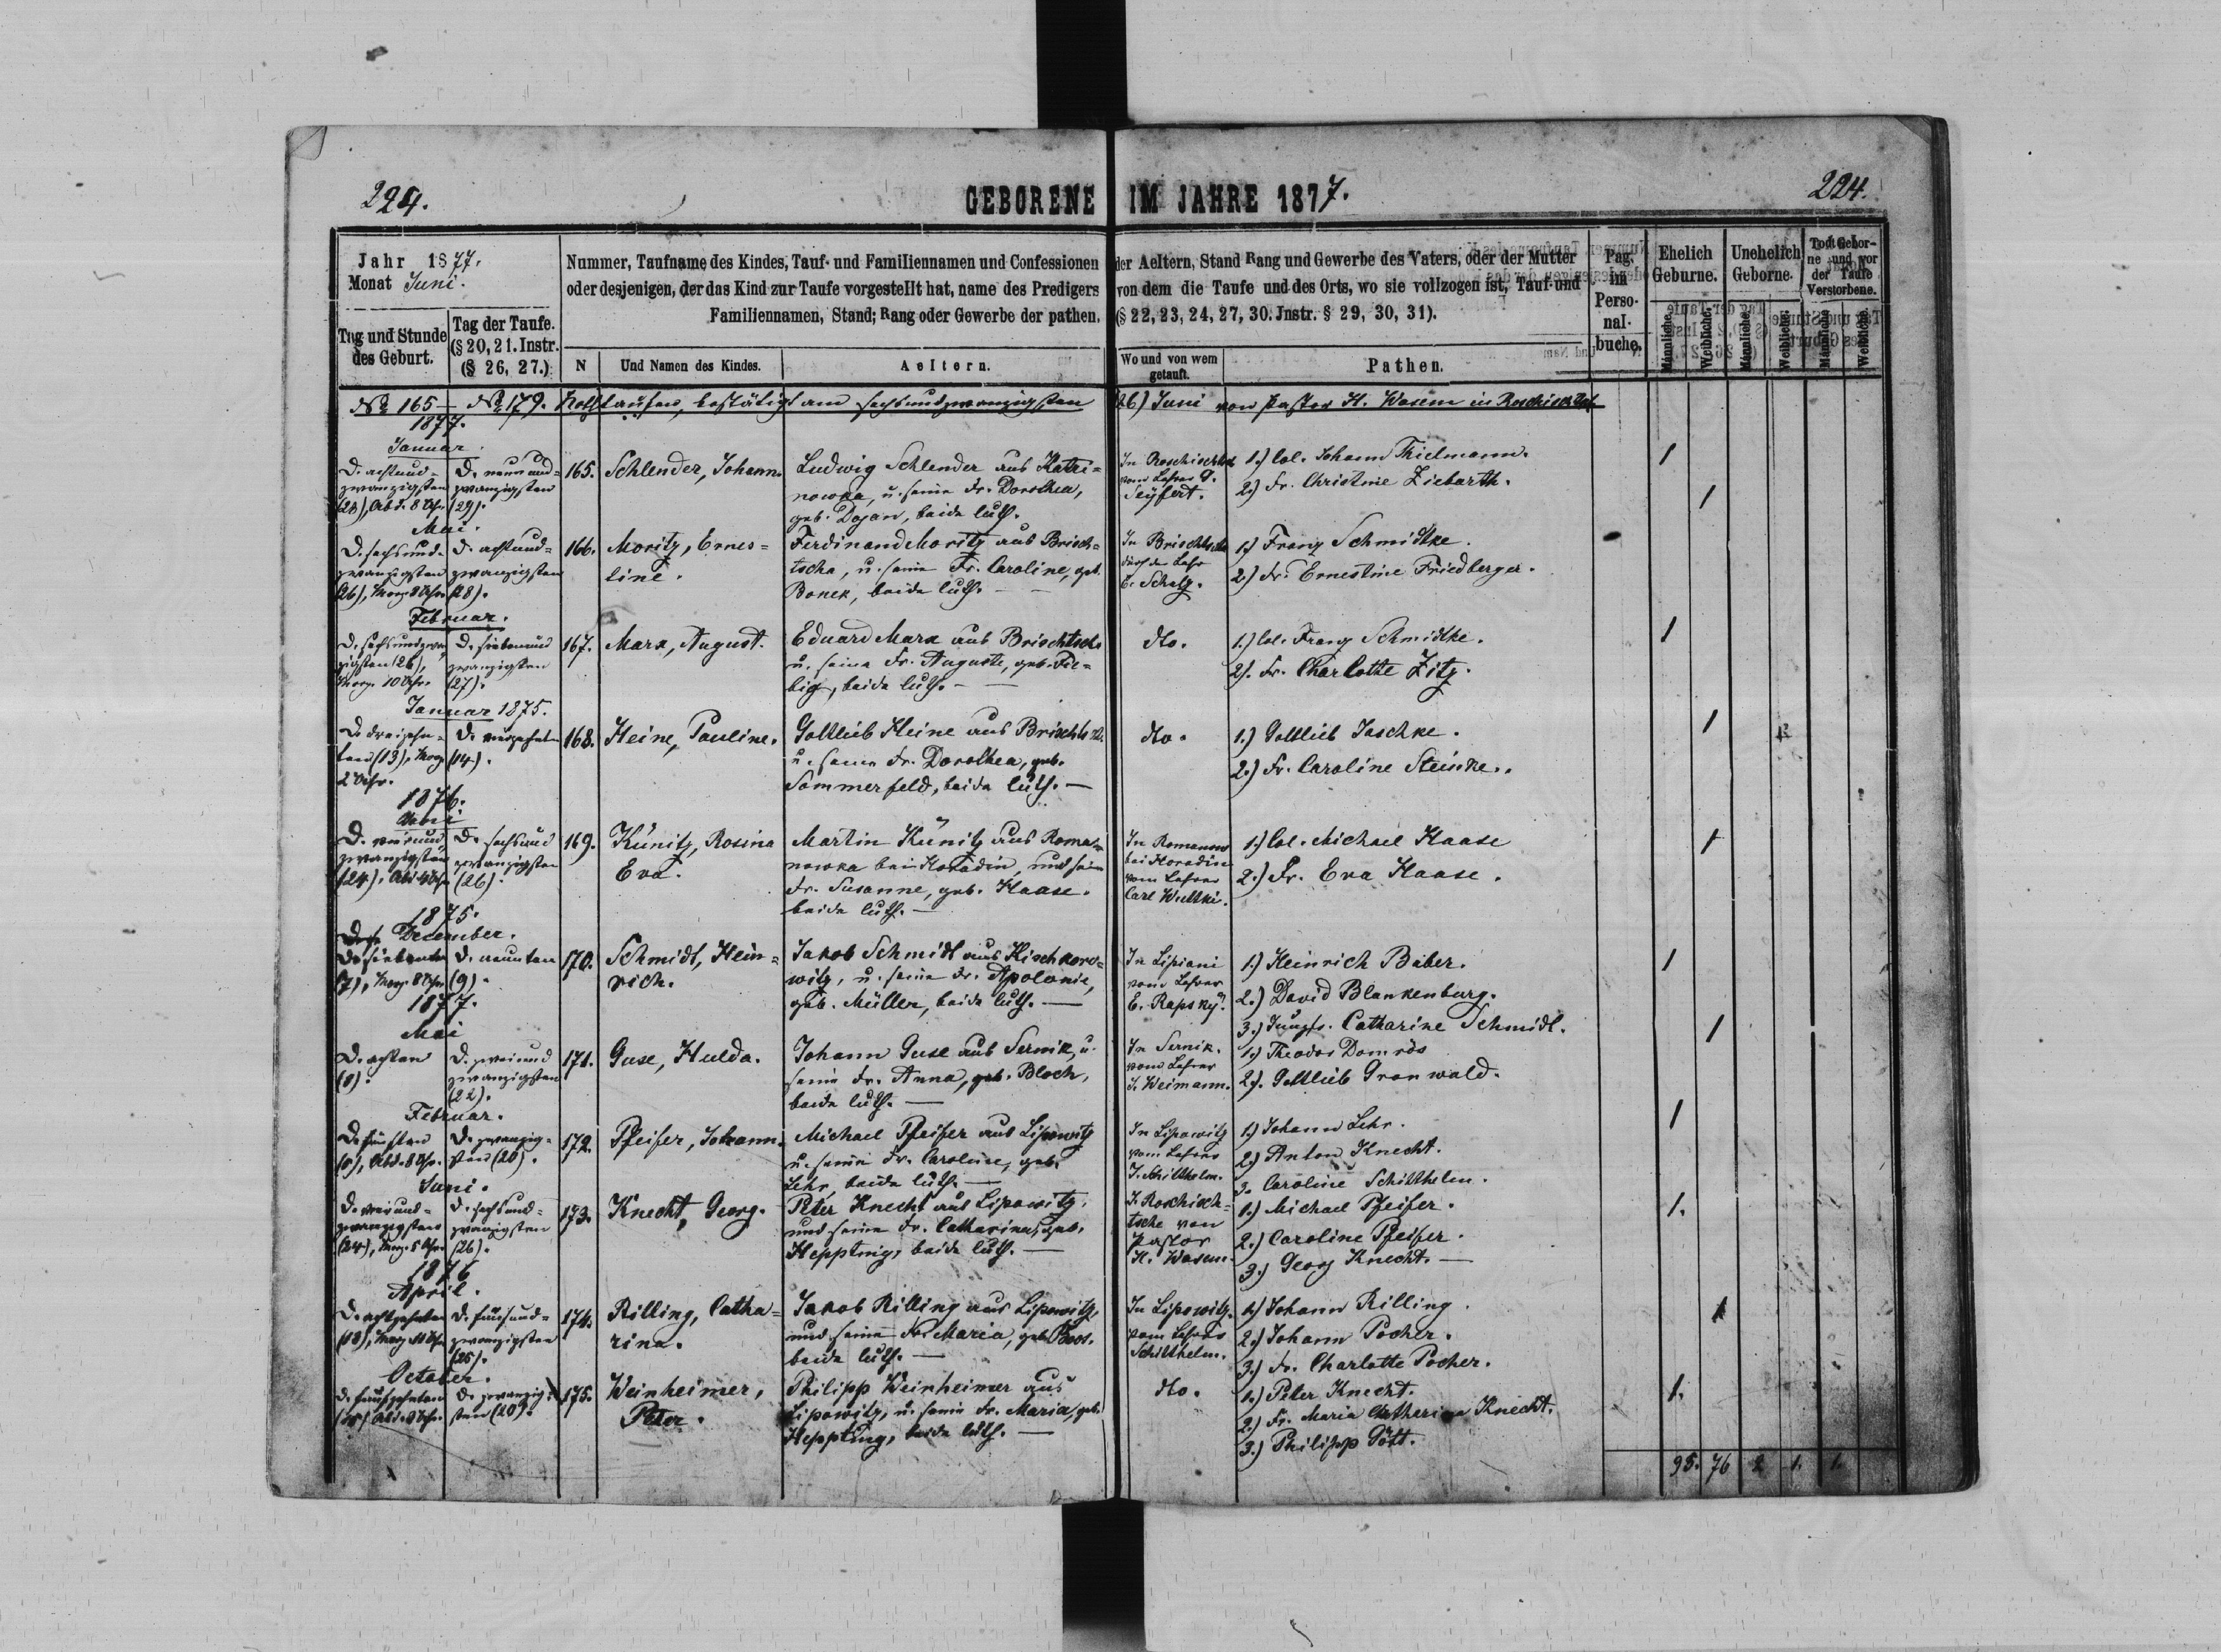 224.
GEBORENE IM JAHRE 1877.
224.
Jahr 1877.
Monat Juni.
Tag und Stunde
des Geburt.
Tag der Taufe.
(§ 20, 21. Instr.
(§ 26, 27.)
Nummer, Taufname des Kindes, Tauf- und Familiennamen und Confessionen der Aeltern, Stand Rang und Gewerbe des Vaters, oder der Mutter
oder desjenigen, der das Kind zur Taufe vorgestellt hat, name des Predigers von dem die Taufe und des Orts, wo sie vollzogen ist, Tauf- und
Familiennamen, Stand; Rang oder Gewerbe der pathen. (§ 22, 23, 24, 27, 30. Jnstr. § 29, 30, 31).
N
Und Namen des Kindes.
Aeltern.
Wo und von wem
getauft.
Pathen.
Pag.
im
Perso-
nal-
buche.
Ehelich
Geburne.
Unehelich
Geborne.
Todt Gebor-
ne und vor
der Taufe
Verstorbene.
Männliche.
Weibliche.
Männliche.
Weibliche.
Männliche
Weibliche.
No 165 — No 179. Nothtaufen, bestätigt am sechsundzwanzigsten (26) Juni von Pastor H. Wasem in Roschischtsche
1877.
Januar.
D. achtund-
zwanzigsten
(28), Abd. 8 Uhr
D. neunund-
zwanzigsten
(29).
165.
Schlender, Johann.
Ludwig Schlender aus Katri-
nowka, u. seine Fr. Dorothea,
geb. Dojan, beide luth.
In Roschischtsch
vom Lehrer G.
Seyfert.
1.) Col. Johann Thielmann.
2.) Fr. Christine Ziebarth.
1
Mai.
D. sechsund-
zwanzigsten
(26), Morg. 8 Uhr
D. achtund-
zwanzigsten
(28).
166.
Moritz, Ernes-
tine.
Ferdinand Moritz aus Brisch-
tscha, u. seine Fr. Caroline, geb.
Bonek, beide luth. —
In Brischtscha
durch den Lehr
E. Schatz.
1.) Franz Schmidtke.
2.) Fr. Ernestine Friedberger.
1
Februar.
D. sechsundzwan
zigsten (26),
Morg. 10 Uhr.
D. siebenund
zwanzigsten
(27).
167.
Marx, August.
Eduard Marx aus Brischtsche
u. seine Fr. Auguste, geb. Fie-
big, beide luth. —
dto.
1.) Col. Franz Schmidtke.
2). Fr. Charlotte Zitz.
1
Januar 1875.
D. dreizehn-
ten (13), Morg.
2 Uhr.
D. vierzehnten
(14).
168.
Heine, Pauline.
Gottlieb Heine aus Brischtsch.
u. seine Fr. Dorothea, geb.
Sommerfeld, beide luth. —
dto.
1.) Gottlieb Jaschke.
2.) Fr. Caroline Steinke.
1
1876.
D. vierund
zwanzigsten
(24), Abd. 4 Uhr
D. sechsund
zwanzigsten
(26).
169.
Künitz, Rosina
Eva.
Martin Künitz aus Roma-
nowka bei Horodin, und seine
Fr. Susanne, geb. Haase.
beide luth. —
In Romanow
bei Horodin
vom Lehrer
Carl Wuttki.
1.) Col. Michael Haase
2.) Fr. Eva Haase.
1
1875.
December.
D. siebenten
(7), Morg. 8 Uhr
D. neunten
(9).
170.
Schmidt, Hein-
rich.
Jakob Schmidt aus Kischkoro-
witz, u. seine Fr. Apolonie,
geb. Müller, beide luth. —
In Lipiani
vom Lehrer
E. Rapsky.
1.) Heinrich Baber.
2.) David Blankenburg.
3.) Jungfr. Catharine Schmidt.
1
1877.
Mai
D. achten
(8).
D. zweiund
zwanzigsten
(22).
171.
Guse, Hulda.
Johann Guse aus Sernik, u.
seine Fr. Anna, geb. Bloch,
beide luth. —
In Sernik.
vom Lehrer
J. Weimann.
1.) Theodor Domrös
2.) Gottlieb Gronwald.
1
Februar.
D. fünften
(5), Abd. 8 Uhr.
D. zwanzig-
sten (20).
172.
Pfeifer, Johann.
Michael Pfeifer aus Lipowitz
u. seine Fr. Caroline, geb.
Lehr, beide luth. —
In Lipowitz
vom Lehrer
J. Schillhelm.
1.) Johann Lehr.
2.) Anton Knecht.
3. Caroline Schillhelm.
1
Juni.
D. vierund-
zwanzigsten
(24), Morg. 5 Uhr
D. sechsund-
zwanzigsten
(26).
173.
Knecht, Georg.
Peter Knecht aus Lipowitz,
und seine Fr. Catharina, geb.
Heppting, beide luth. —
I. Roschisch-
tsche von
Pastor
H. Wasem.
1.) Michael Pfeifer.
2.) Caroline Pfeifer.
3.) Georg Knecht. —
1.
1876
April.
D. achtzehnten
(18), Morg. 11 Uhr
D. fünfund-
zwanzigsten
(25).
174.
Rilling, Catha-
rina.
Jakob Rilling aus Lipowitz,
und seine Fr. Maria, geb. Boos.
beide luth. —
In Lipowitz.
vom Lehrer
Schillhelm.
1.) Johann Rilling.
2.) Johann Pocher.
3.) Fr. Charlotte Pocher.
1
October.
D. fünfzehnten
(15) Abd. 9 Uhr.
D. zwanzig-
sten (20).
175.
Weinheimer,
Peter.
Philipp Weinheimer aus
Lipowitz, u. seine Fr. Maria, geb.
Heppting, beide luth. —
dto.
1.) Peter Knecht.
2.) Fr. Maria Catherina Knecht.
3.) Philipp Gött.
1.
95. 76 2 1. 1.